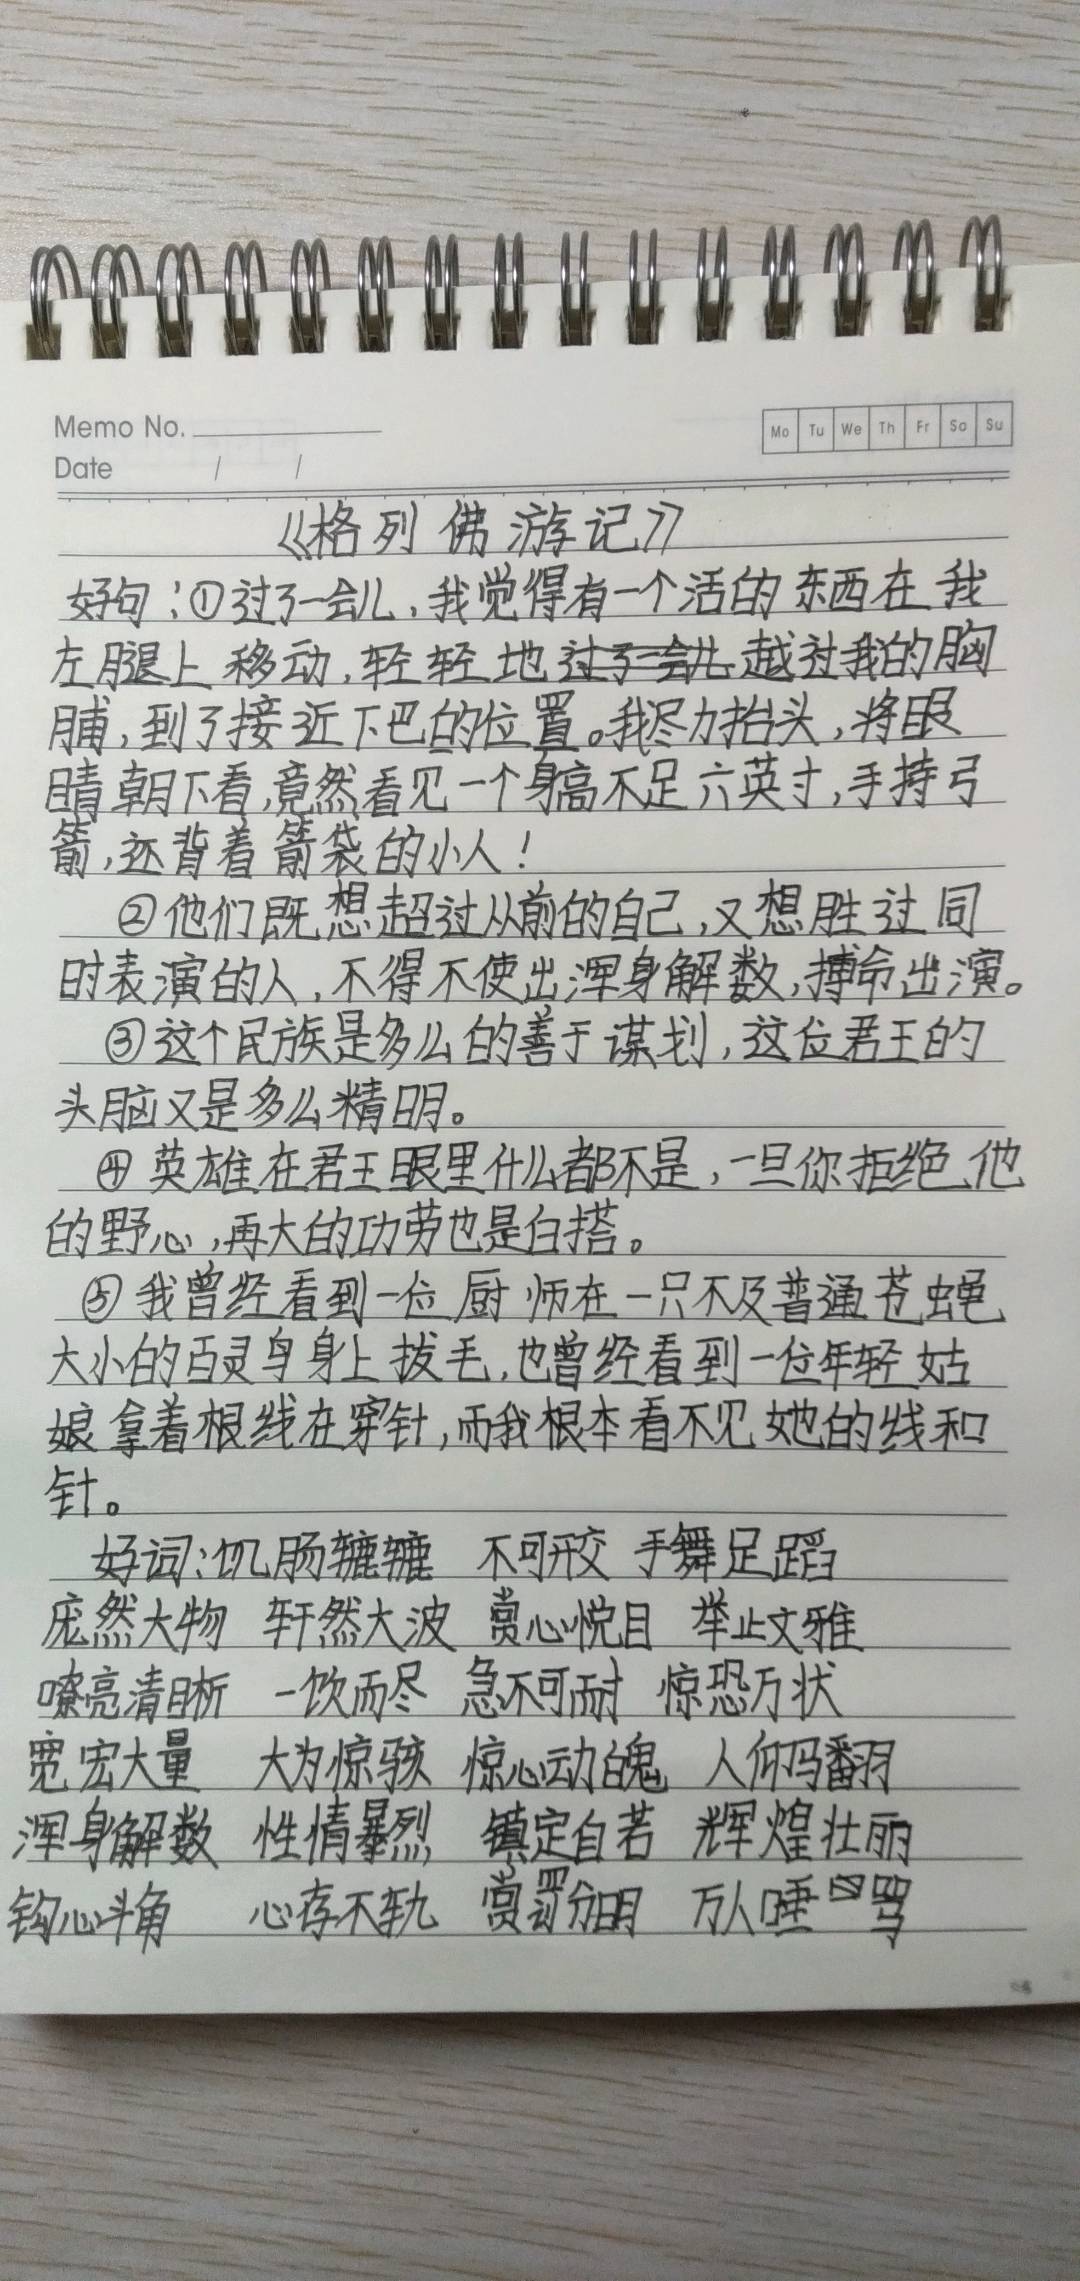 Memo No.
Mo Tu We Th Fr Sa Su
Date / /
《格列佛游记》
好句:①过了一会儿,我觉得有一个活的东西在我
左腿上移动,轻轻地过了一会儿越过我的胸
脯,到了接近下巴的位置。我尽力抬头,将眼
睛朝下看,竟然看见一个身高不足六英寸,手持弓
箭,还背着箭袋的小人!
②他们既想超过从前的自己,又想胜过同
时表演的人,不得不使出浑身解数,搏命出演。
③这个民族是多么的善于谋划,这位君王的
头脑又是多么精明。
④英雄在君王眼里什么都不是,一旦你拒绝他
的野心,再大的功劳也是白搭。
⑤我曾经看到一位厨师在一只不及普通苍蝇
大小的百灵鸟身上拔毛,也曾经看到一位年轻姑
娘拿着根线在穿针,而我根本看不见她的线和
针。
好词:饥肠辘辘 不可开交 手舞足蹈
庞然大物 轩然大波 赏心悦目 举止文雅
嘹亮清晰 一饮而尽 急不可耐 惊恐万状
宽宏大量 大为惊骇 惊心动魄 人仰马翻
浑身解数 性情暴烈 镇定自若 辉煌壮丽
钩心斗角 心存不轨 赏罚分明 万人唾骂